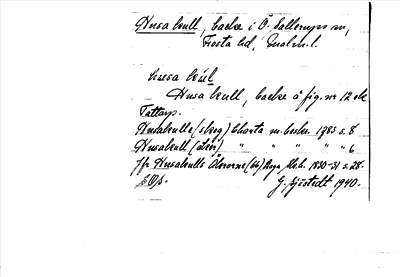 Husa kull, backe i Ö. Sallerups sn,
Frosta hd, Malm. l.
Husa kull, backe å fig. nr 12 
Tattarp.
Husakulle (skog) Charta m. beskr. 1785 s. 8
Husakull (åker) " " " " " 6
Jfr Husakulls Åkrarne (åk) 1830-31 s. 28.
G. Sjöstedt 1940.